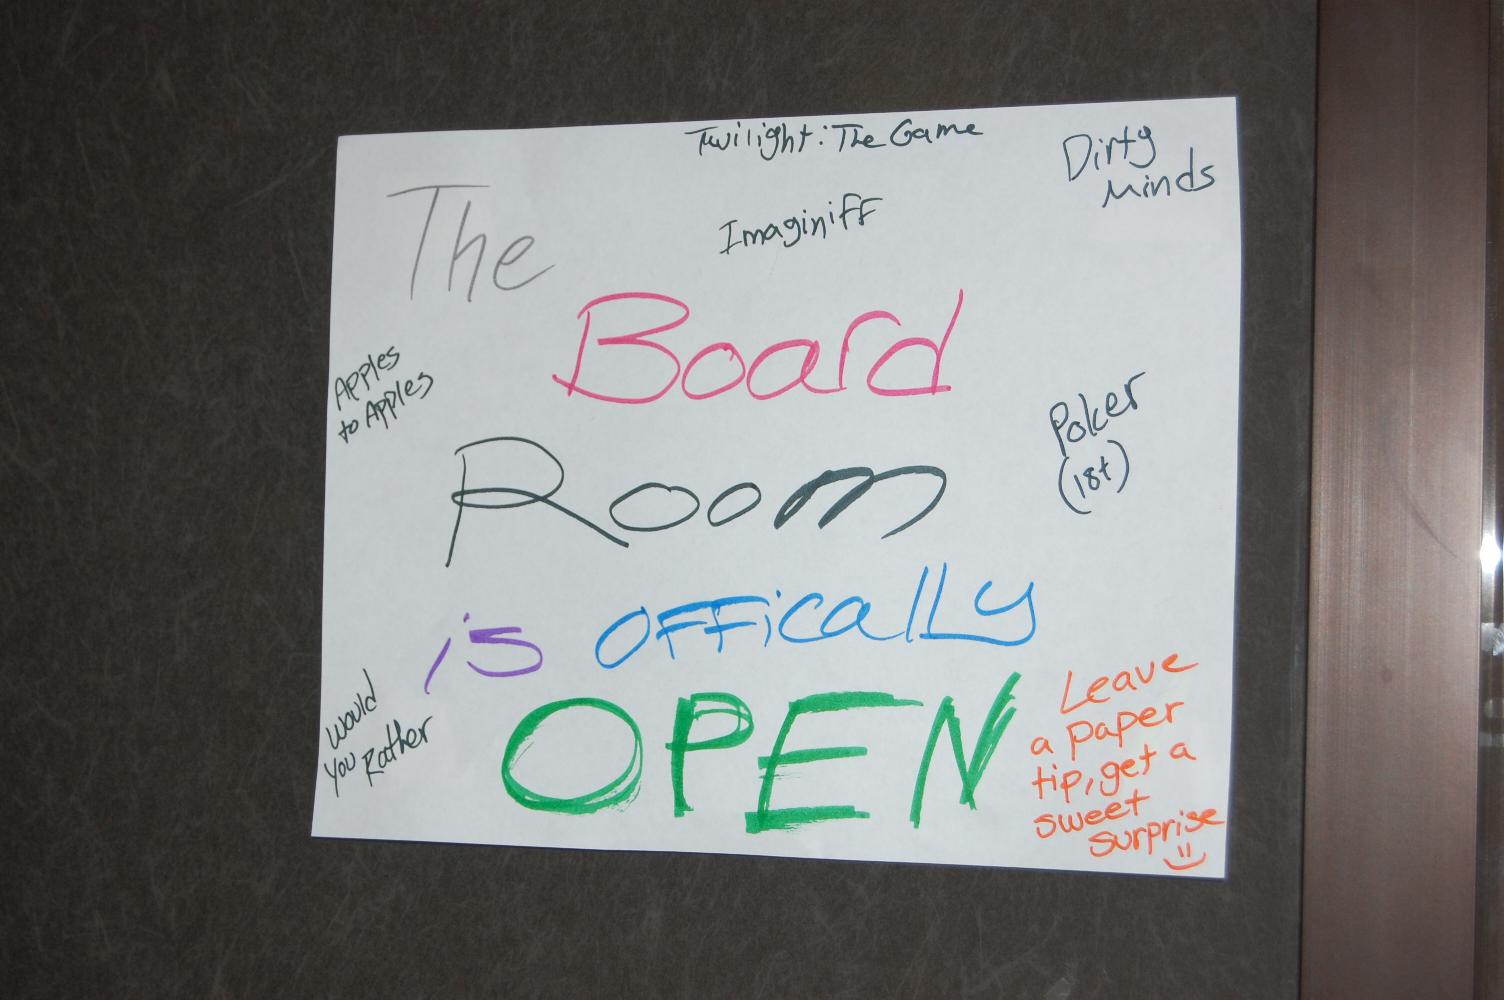 Twilight: The Game
Dirty
Minds
The
Imaginiff
Board
Apples
to Apples
Poker
(18+)
Room
is Offically
Would
You Rather
OPEN
Leave
a paper
tip, get a
sweet
surprise